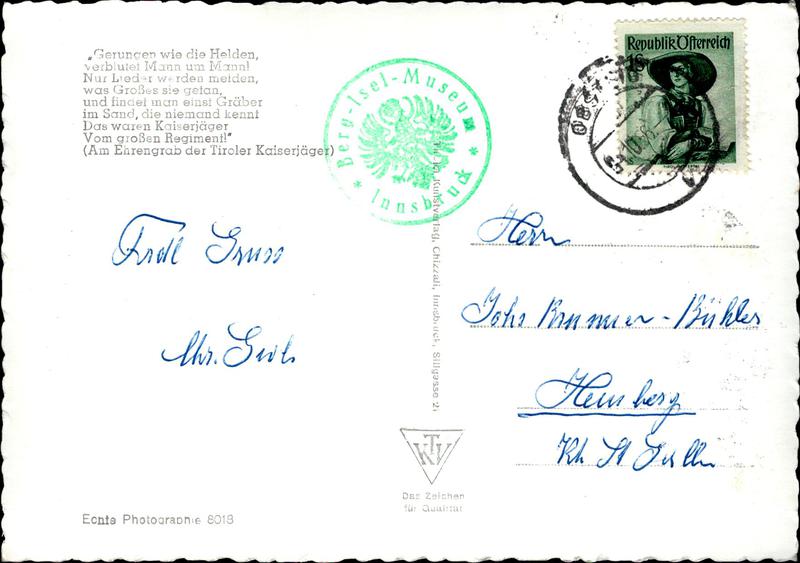 „Gerungen wie die Helden,
verblutet Mann um Mann!
Nur Lieder werden melden,
was Großes sie getan,
und findet man einst Gräber
im Sand, die niemand kennt
Das waren Kaiserjäger
Vom großen Regiment!"
(Am Ehrengrab der Tiroler Kaiserjäger)
* Berg-Isel-Museum *
Innsbruck
Republik Österreich
1S
Kunstverlag, Chizzali, Innsbruck, Sillgasse 21
Frdl Gruss
Chr.
Herrn
Johs Brunner-Bühler
Hemberg
Kt St Gallen
KTV
Das Zeichen
für Qualität
Echte Photographie 8018